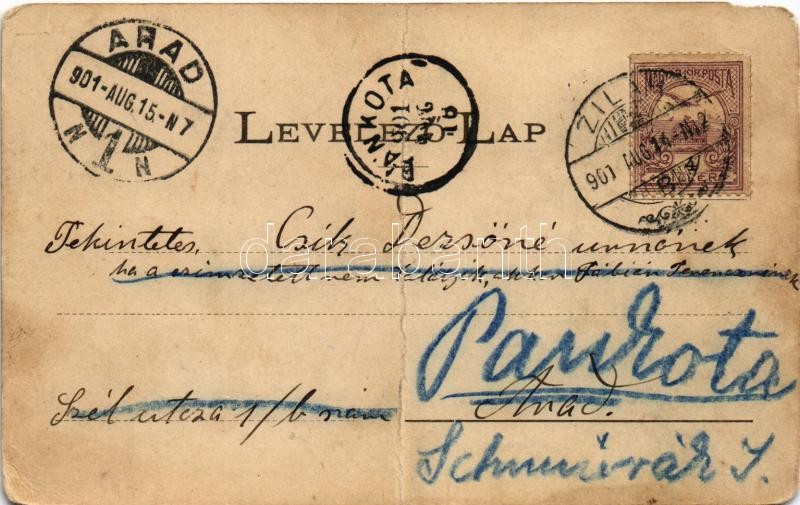 ARAD
901-AUG.15.-N7
N 1 N
PANKOTA
901
AUG
16
ZILAH
901 AUG.14.-N12
MAGYAR KIR. POSTA
LEVELEZŐ-LAP
Tekintetes, Csík Dezsőné urnőnek
ha a czímzettet nem találják, akkor Fábián Ferencznének
Pankota
Szél utcza 1/b szám Arad.
darabanth